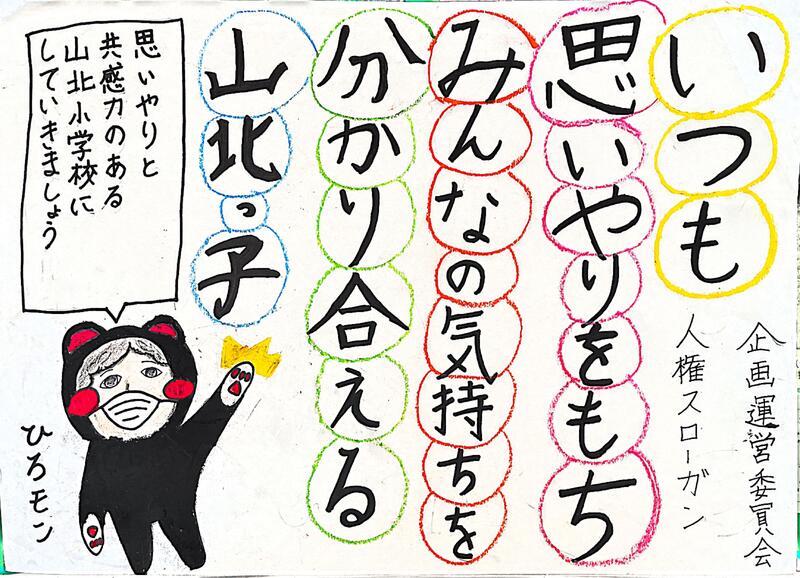 いつも
思いやりをもち
みんなの気持ちを
分かり合える
山北っ子
企画運営委員会
人権スローガン
思いやりと
共感力のある
山北小学校に
していきましょう
ひろモン